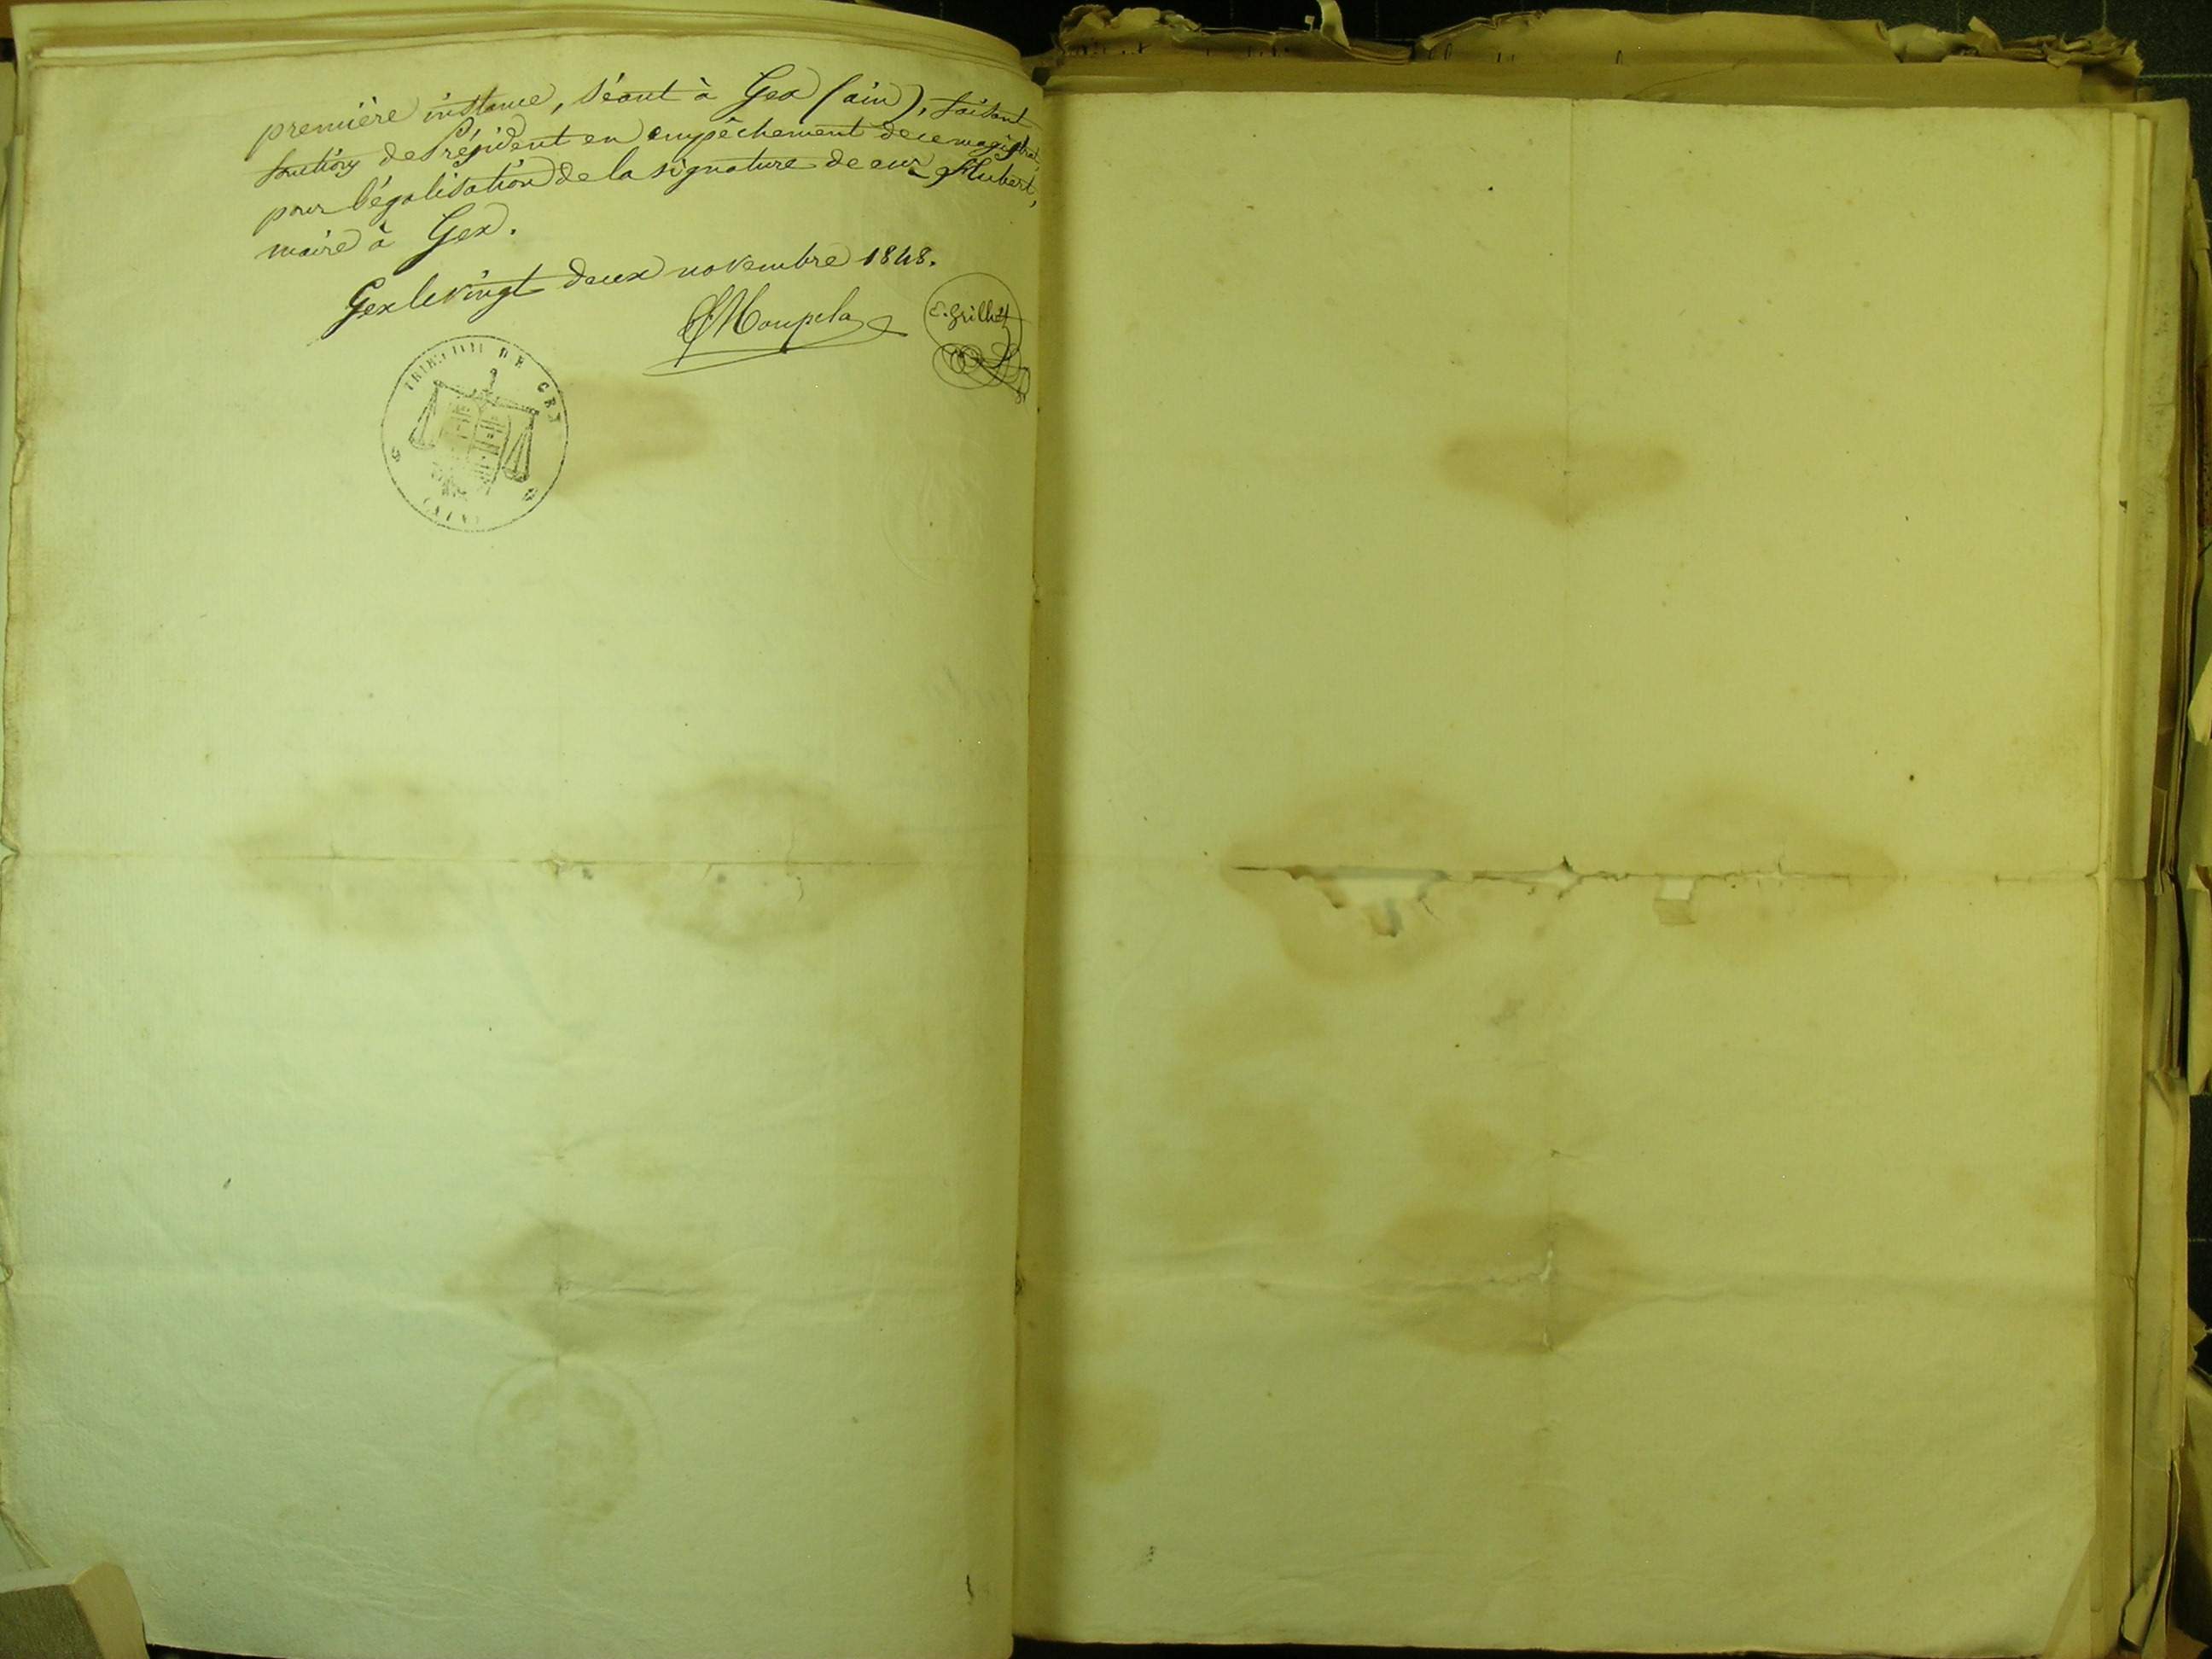 première instance, séant à Gex (ain), faisant
fonctions de Président en empêchement de ce magistrat,
pour légalisation de la signature de Mr Hubert,
maire à Gex.
Gex le vingt deux novembre 1848.
E. Grilliet
TRIBUNAL DE GEX
(AIN)